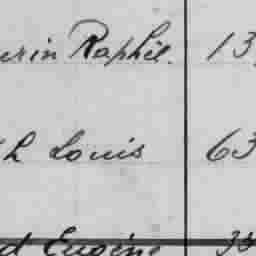 urin Raphël. 13
h Louis 63
d Eugène 33